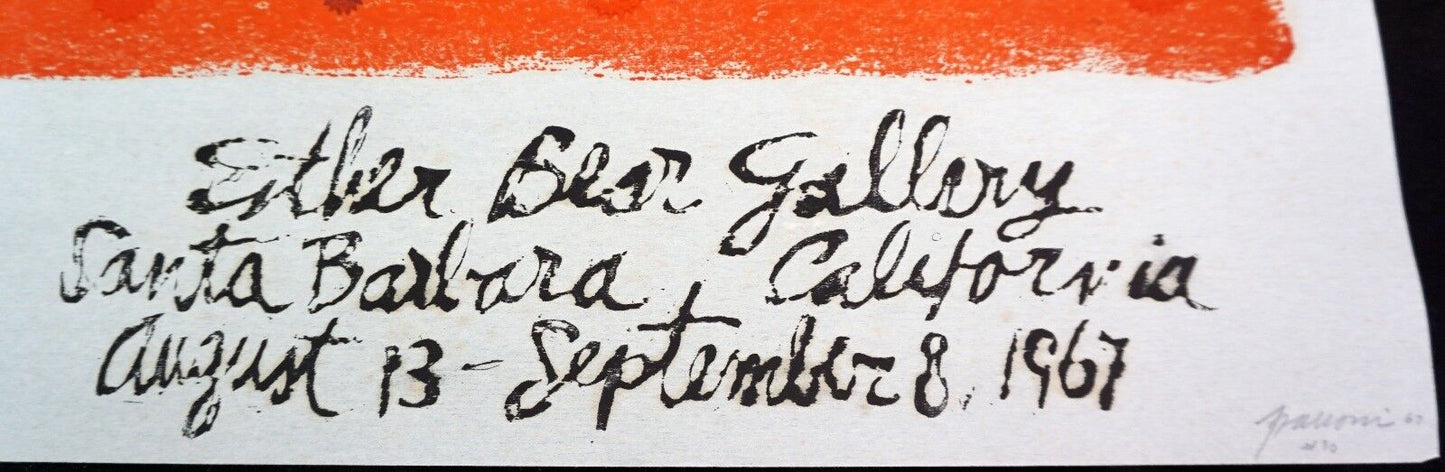 Esther Bear Gallery
Santa Barbara, California
August 13 - September 8, 1967